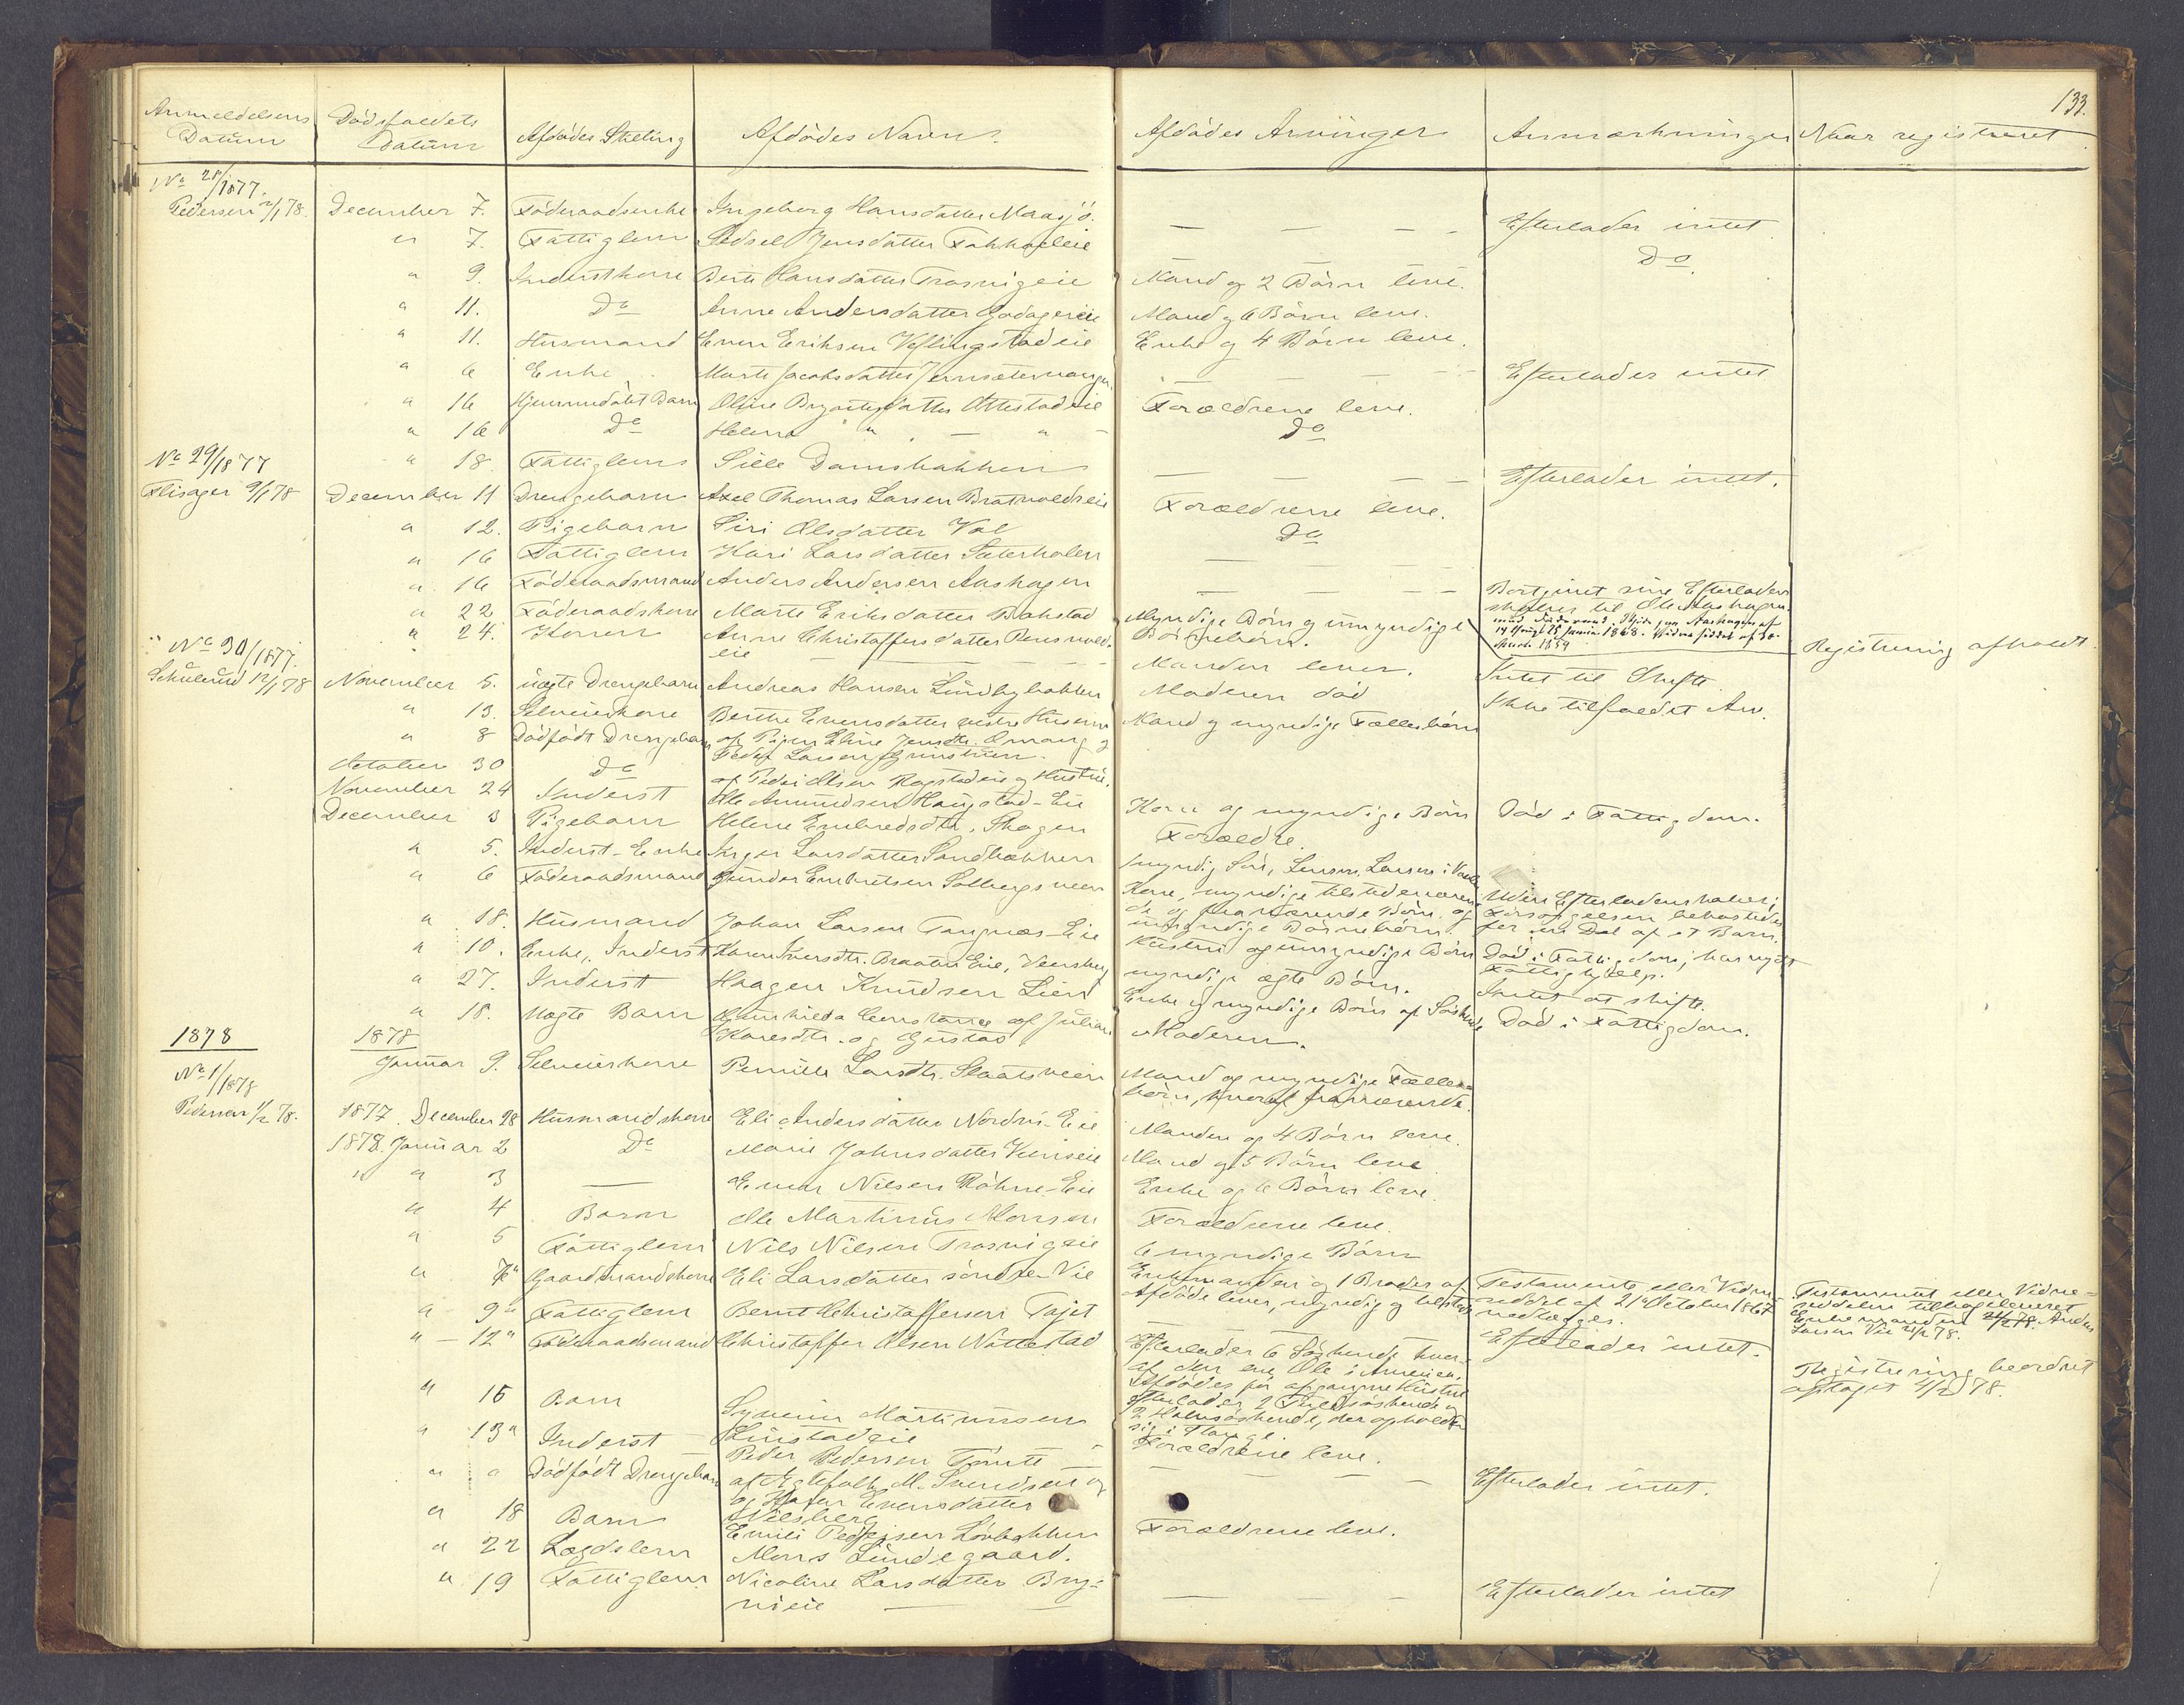 133.
Anmeldelsens Datum | Dødsfaldets Datum | Afdødes Stilling | Afdødes Navn. | Afdødes Arvinger | Anmærkninger | Naar registreret
No 28/1877.
Pedersen 2/1 78. December 7. Føderaadsenke Ingeborg Hansdatter Maasjø. — — — — Efterlader intet
" 7. Fattiglem Sidsel Jensdatter — — — Do.
" 9. Inderstkone Berte Hansdatter Trosvigeie Mand og 2 Børn leve.
" 11. Do Anne Andersdatter Mand og 6 Børn leve.
" 11. Husmand Even Eriksen Veflingstadeie Enke og 4 Børn leve.
" 6 Enke Marte Jacobsdatter — — — Efterlader intet
" 16 Hjemmedøbt Barn Oline Ottestadeie Forældrene leve.
" 16 Do Helene " — " — Do
No 29/1877 " 18. Fattiglem Sille Damsbakken — — — Efterlader intet.
Flisager 9/1 78 December 11 Drengebarn Axel Thomas Larsen Forældrene leve.
" 12. Pigebarn Siri Olsdatter Vol Do
" 16 Fattiglem Kari Larsdatter Sæterholen — — —
" 16 Føderaadsmand Anders Andersen Aashagen — — — Bortgivet sine Efterladen-
skaber til Ole Aashagen
" 22 Føderaadskone Marte Eriksdatter Bakstad Myndige Børn og umyndige
Børnebørn. Registrering afholdt.
No 30/1877. " 24. Konen Anne Christoffersdatter
eie Manden lever. Intet til Skifte.
Schulerud 12/1 78 November 5. uægte Drengebarn Andreas Hansen Lundbybakken Moderen død Ikke tilfaldet Arv.
" 13. Selveierkone Berthe Evensdatter vestre Huserm Mand og myndige Fællesbørn
" 8 Dødfødt Drengebarn af Pigen Eline Jensdtr. og
Peder Larsen
October 30 Do af Peder Olsen og Hustru.
November 24 Inderst Ole Amundsen Haugstad-Eie Kone og myndige Børn Død i Fattigdom.
December 3 Pigebarn Helene Embredsdtr. Skogen Forældre.
" 5. Inderst-Enke Inger Larsdatter Sandbækken myndig Søn,
" 6 Føderaadsmand Gunder Embretsen Solbergsveen Kone, myndige tilstedeværen-
de og fraværende Børn og
umyndige Børnebørn. Uden Efterladenskaber;
Forsørgelsen bekostedes
for en Del af et Barn.
" 18. Husmand Johan Larsen Tangnæs-Eie Hustru og umyndige Børn Død i Fattigdom; har nydt
Fattighjælp.
" 10. Enke, Inderst Karen Iversdtr. Braaten Eie, myndige ægte Børn. Intet at skifte.
" 27. Inderst Haagen Knudsen Lien Enke og myndige Børn af Død i Fattigdom.
" 18. Uægte Barn Gunhilda Constance af Juliane
Karesdtr. og Gustav Moderen.
1878 1878
Januar 9. Selveierkone Pernille Larsdtr. Slaatsveen Mand og myndige Fælles-
børn, hvoraf fraværende.
No 1/1878
Pedersen 1/2 78. 1877. December 28 Husmandskone Eli Andersdatter Nordvi-Eie Manden og 4 Børn leve.
1878. Januar 2 Do Marie Johnsdatter Mand og 5 Børn leve.
" " 3 — Even Nilsen Røhne-Eie Enke og 6 Børn leve.
" 4 Barn Ole Martinus Monsen Forældrene leve.
" 5 Fattiglem Nils Nilsen Trosvigeie 6 myndige Børn
" 7" Gaardmandskone Eli Larsdatter søndre Vie Enkemanden og 1 Broder af
Afdøde lever, myndig og tilstede Testamente eller Vidne-
seddel af 21de October 1867
nedlægges. Testamentet eller Vidne-
seddelen tilbageleveret
Enkemanden Anders
Larsen Vie 78.
" 9" Fattiglem Bernt Christoffersen Tajet Efterlader intet.
" — 12" Føderaadsmand Christoffer Olsen Nøttestad Efterlader 6 Søskende hvor-
af den ene Ole i Amerika.
Afdødes før afgangne Hustru
efterlader 2 Helsøskende og
2 Halvsøskende, der opholder
sig i Stange. Registrering beordret
optaget 4/2 78.
" 15 Barn Syverin Martinusen
Linstadeie Forældrene leve.
" 13" Inderst Peder Pedersen Tomte — — — Efterlader intet.
" " Dødfødt Drengebarn af Egtefolk M. Svendsen og
og Evensdatter
Nilsberg
" 18 Barn Emili Forældrene leve.
" 22 Lægdslem Mons Lundegaard.
" 19 Fattiglem Nicoline Larsdatter Bry-
nieie — — — — Efterlader intet